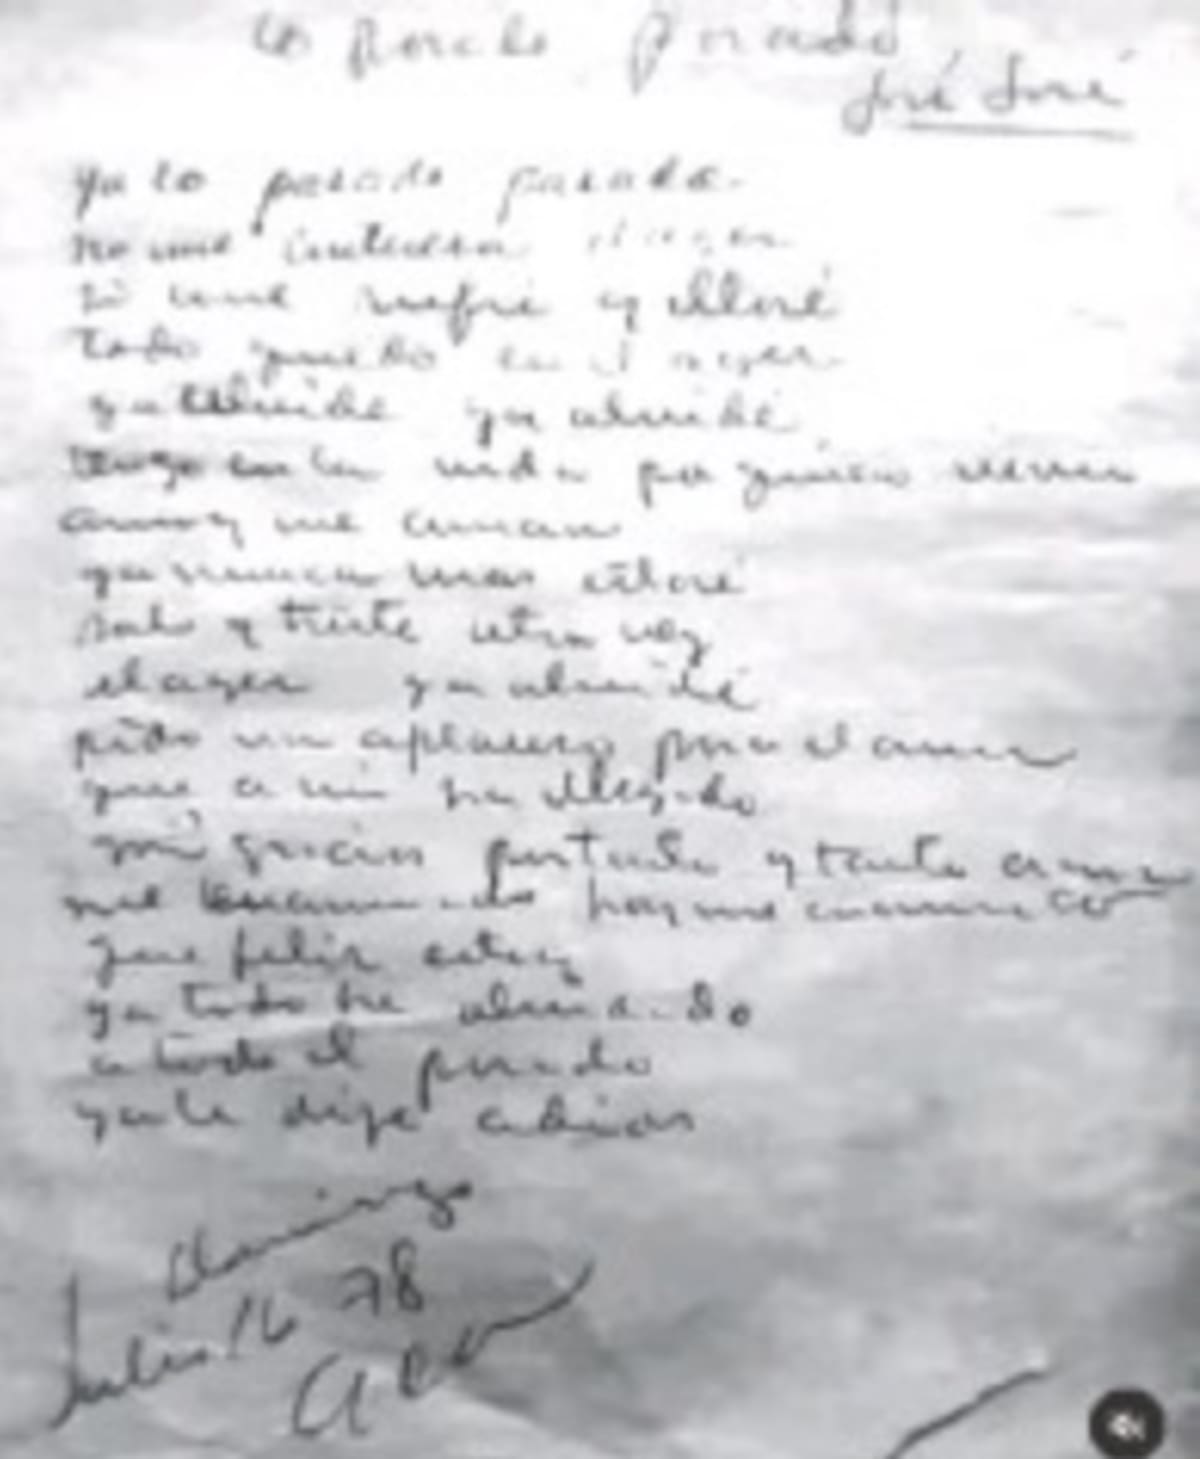 lo pasado pasado
José José
Ya lo pasado pasado
no me interesa
si une sufri y lloré
todo quedo en el ayer
ya olvide ya olvidé
tengo en la vida por quien vivir
amo y me aman
ya nunca mas estaré
solo y triste otra vez
el ayer ya olvidé
pido un aplauso para el amor
que a mi ha llegado
mil gracias por tanto y tanto amor
me enamorado
que feliz estoy
ya todo he olvidado
a todo el pasado
ya le dije adios
domingo
Julio 16 78